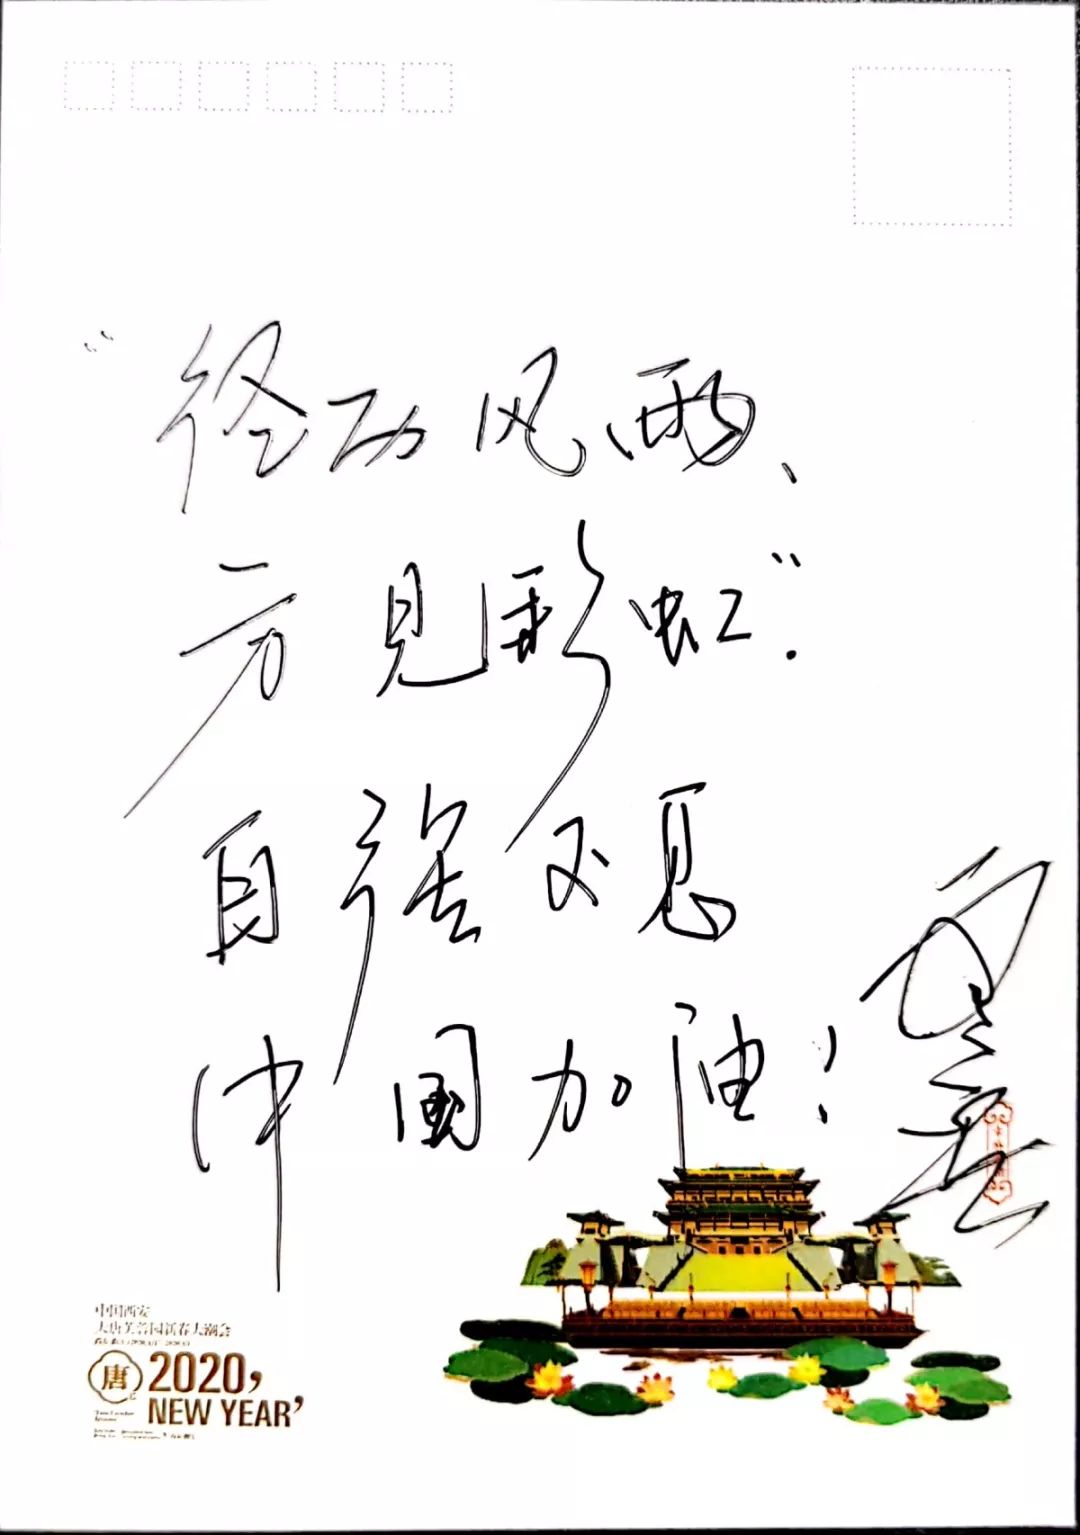 “经历风雨、
方见彩虹”.
自强不息
中国加油！
中国西安
大唐芙蓉园新春大潮会
唐
2020,
NEW YEAR’